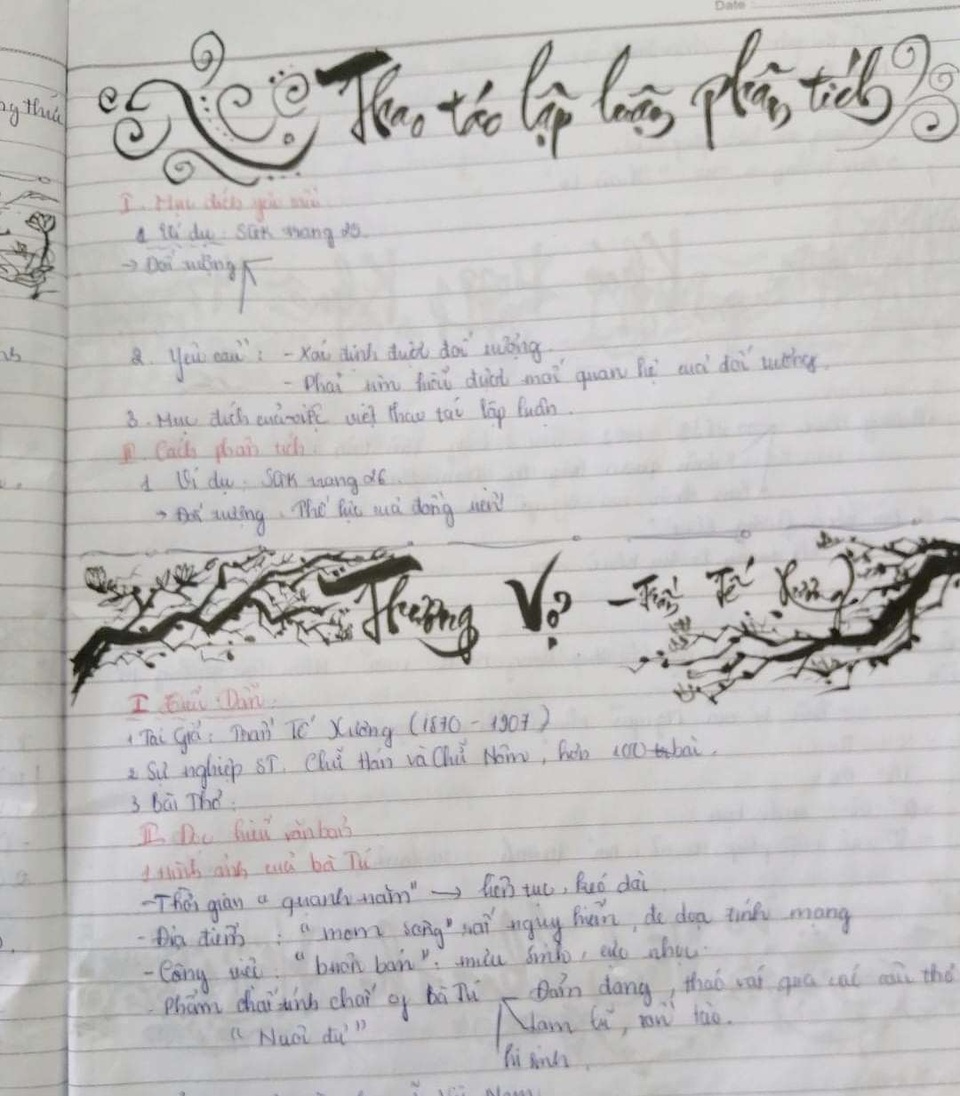 Date
Thao tác lập luận phân tích
I. Mục đích yêu cầu
1. Ví dụ: SGK trang 25
→ Đối tượng
2. Yêu cầu: - Xác định được đối tượng
- Phải tìm hiểu được mối quan hệ của đối tượng.
3. Mục đích của việc viết thao tác lập luận.
II. Cách phân tích.
1 Ví dụ: SGK trang 26
→ Đối tượng. Thế lực của đồng tiền
Thương Vợ - Trần Tế Xương
I Tiểu Dẫn
1 Tác Giả: Trần Tế Xương (1870 - 1907)
2 Sự nghiệp ST. Chữ Hán và Chữ Nôm, hơn 100 bài.
3 Bài Thơ:
II. Đọc hiểu văn bản
1 Hình ảnh của bà Tú
- Thời gian "quanh năm" → liên tục, kéo dài
- Địa điểm: "mom sông" nguy hiểm, đe dọa tính mạng
- Công việc: "buôn bán": mưu sinh, cực nhọc.
- Phẩm chất tính chất of bà Tú Đảm đang, tháo vát qua các câu thơ
"Nuôi đủ" Tam tả, tần tảo.
hi sinh